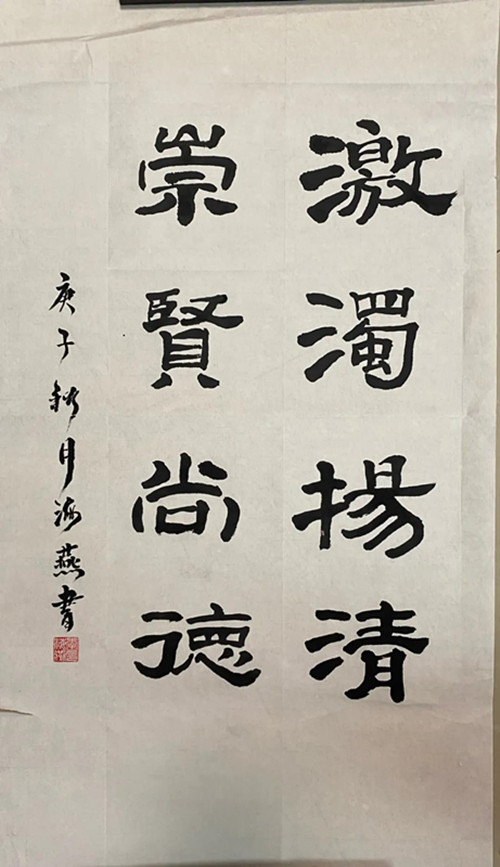 激濁揚清
崇賢尚德
庚子秋月海燕書